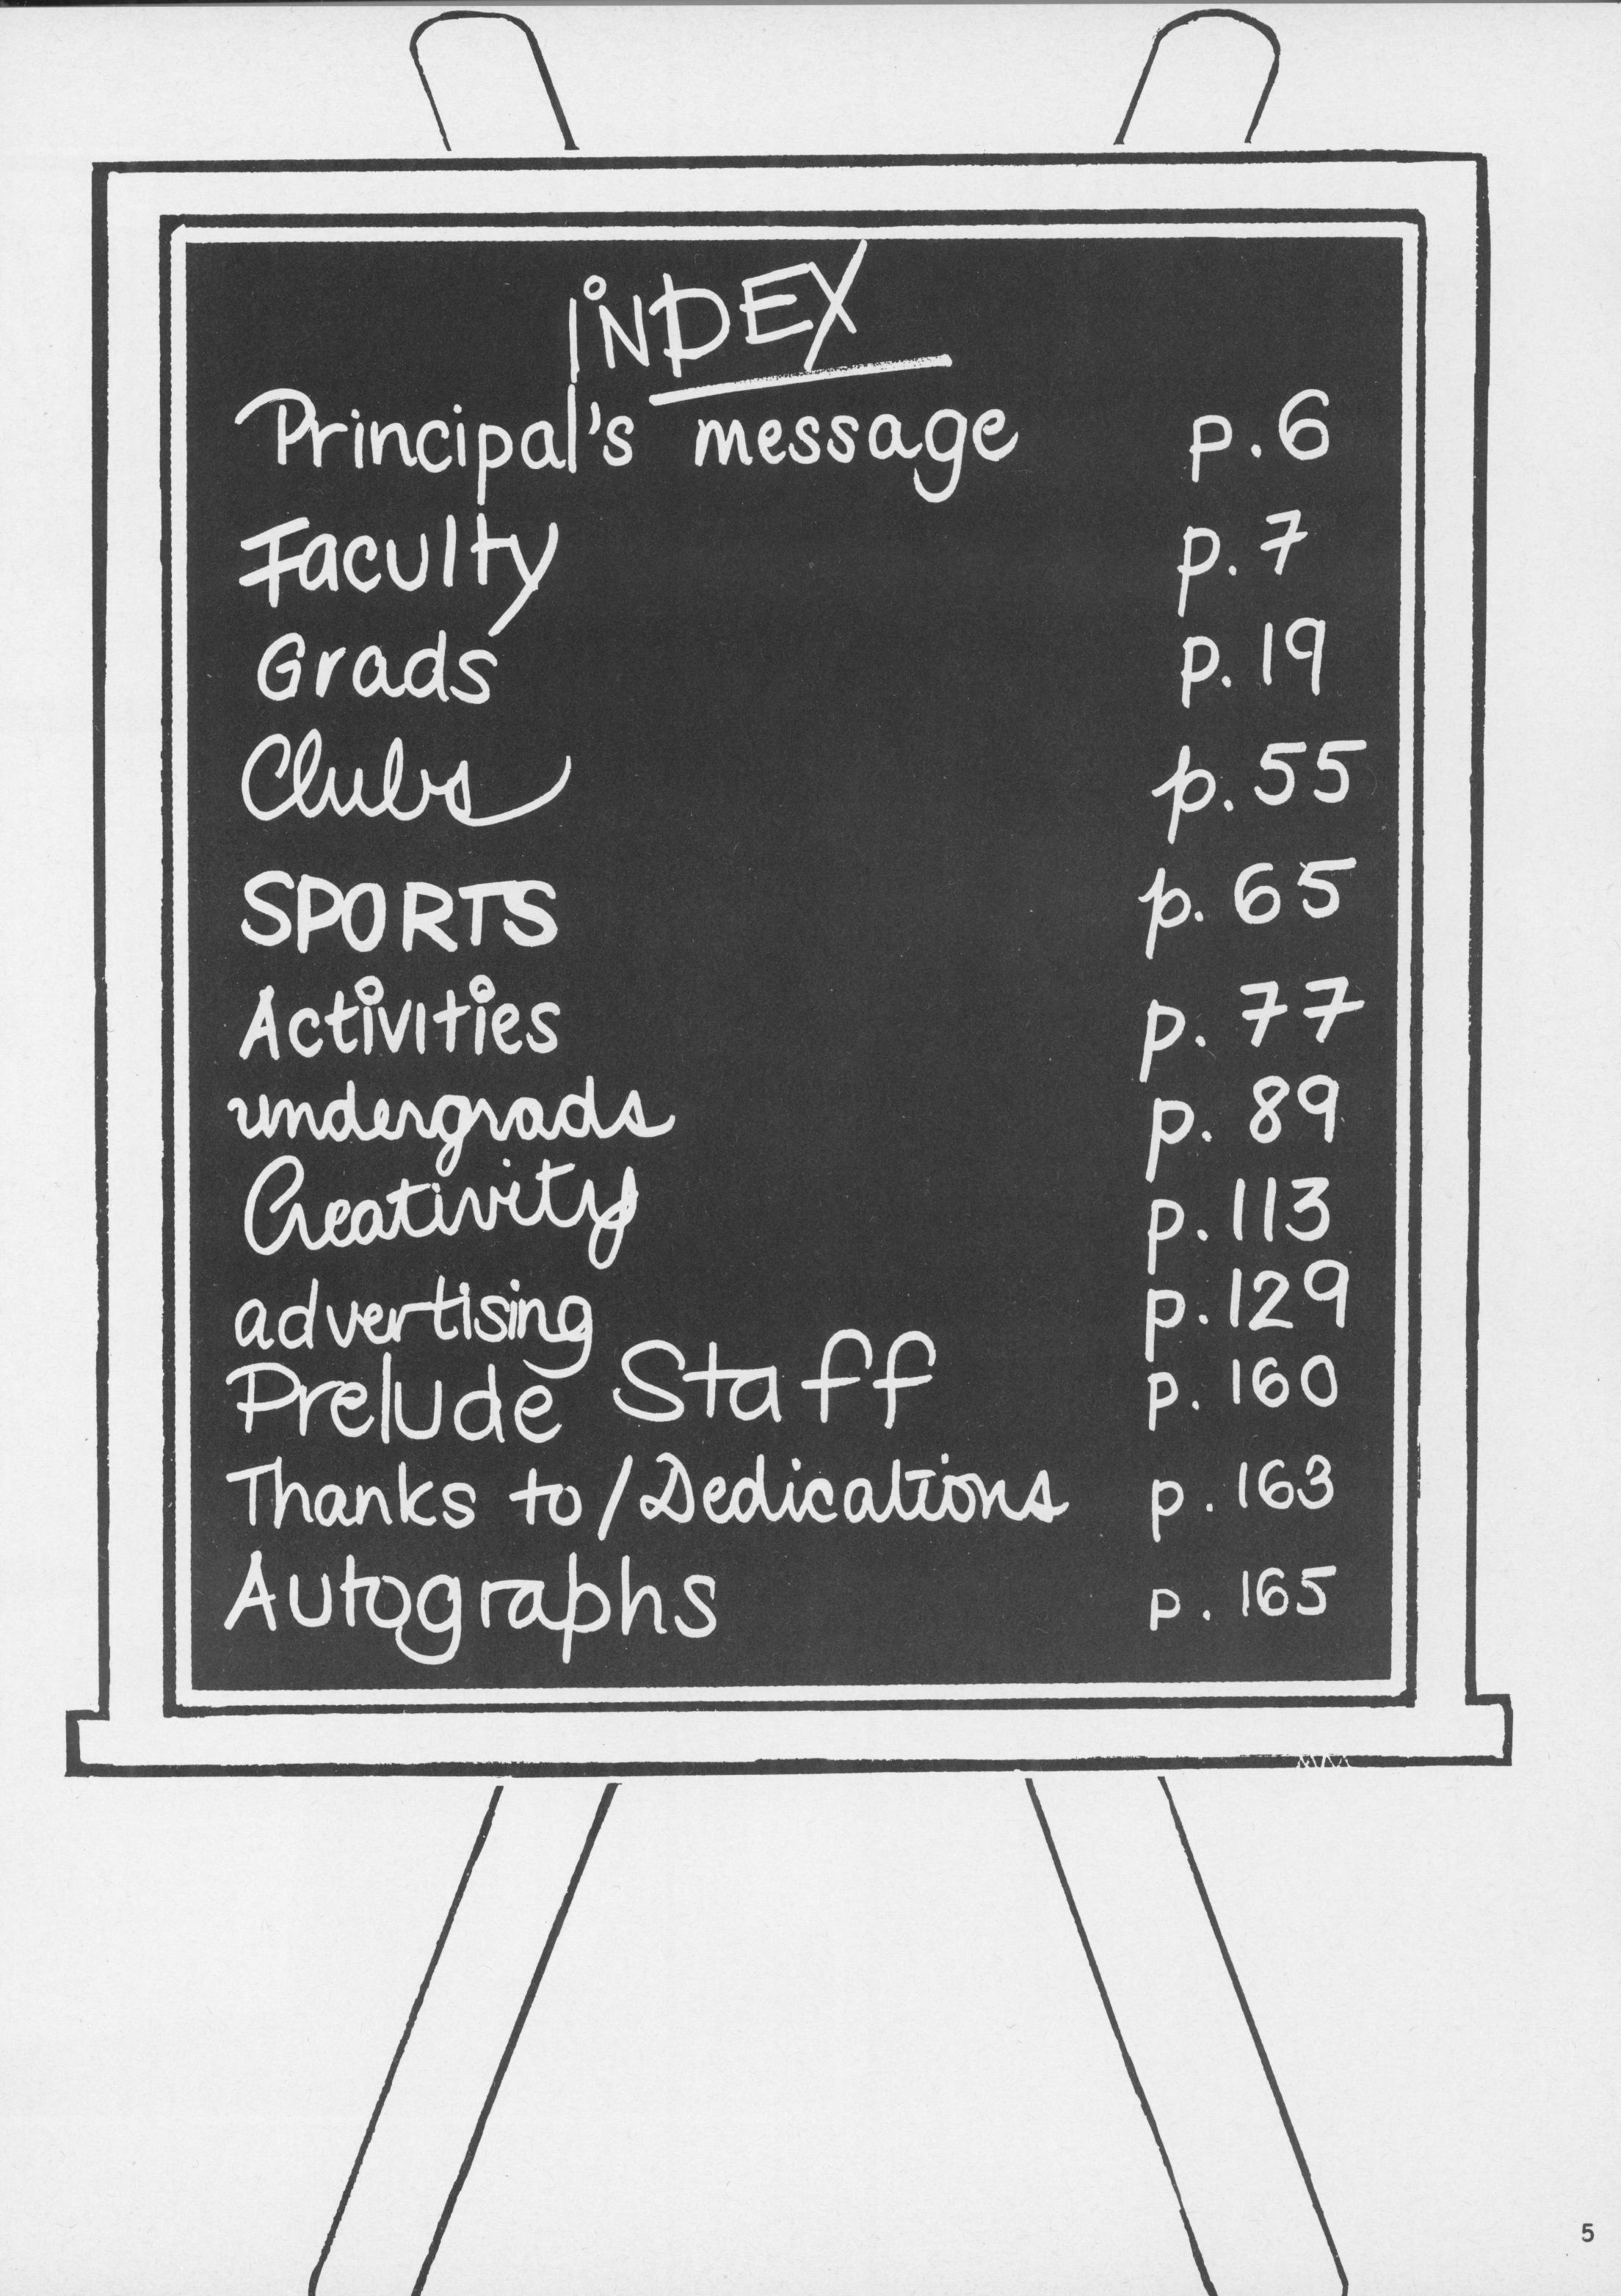 INDEX
Principal's message p. 6
Faculty p. 7
Grads p. 19
Clubs p. 55
SPORTS p. 65
Activities p. 77
undergrads p. 89
Creativity p. 113
advertising p. 129
Prelude Staff p. 160
Thanks to / Dedications p. 163
Autographs p. 165
5